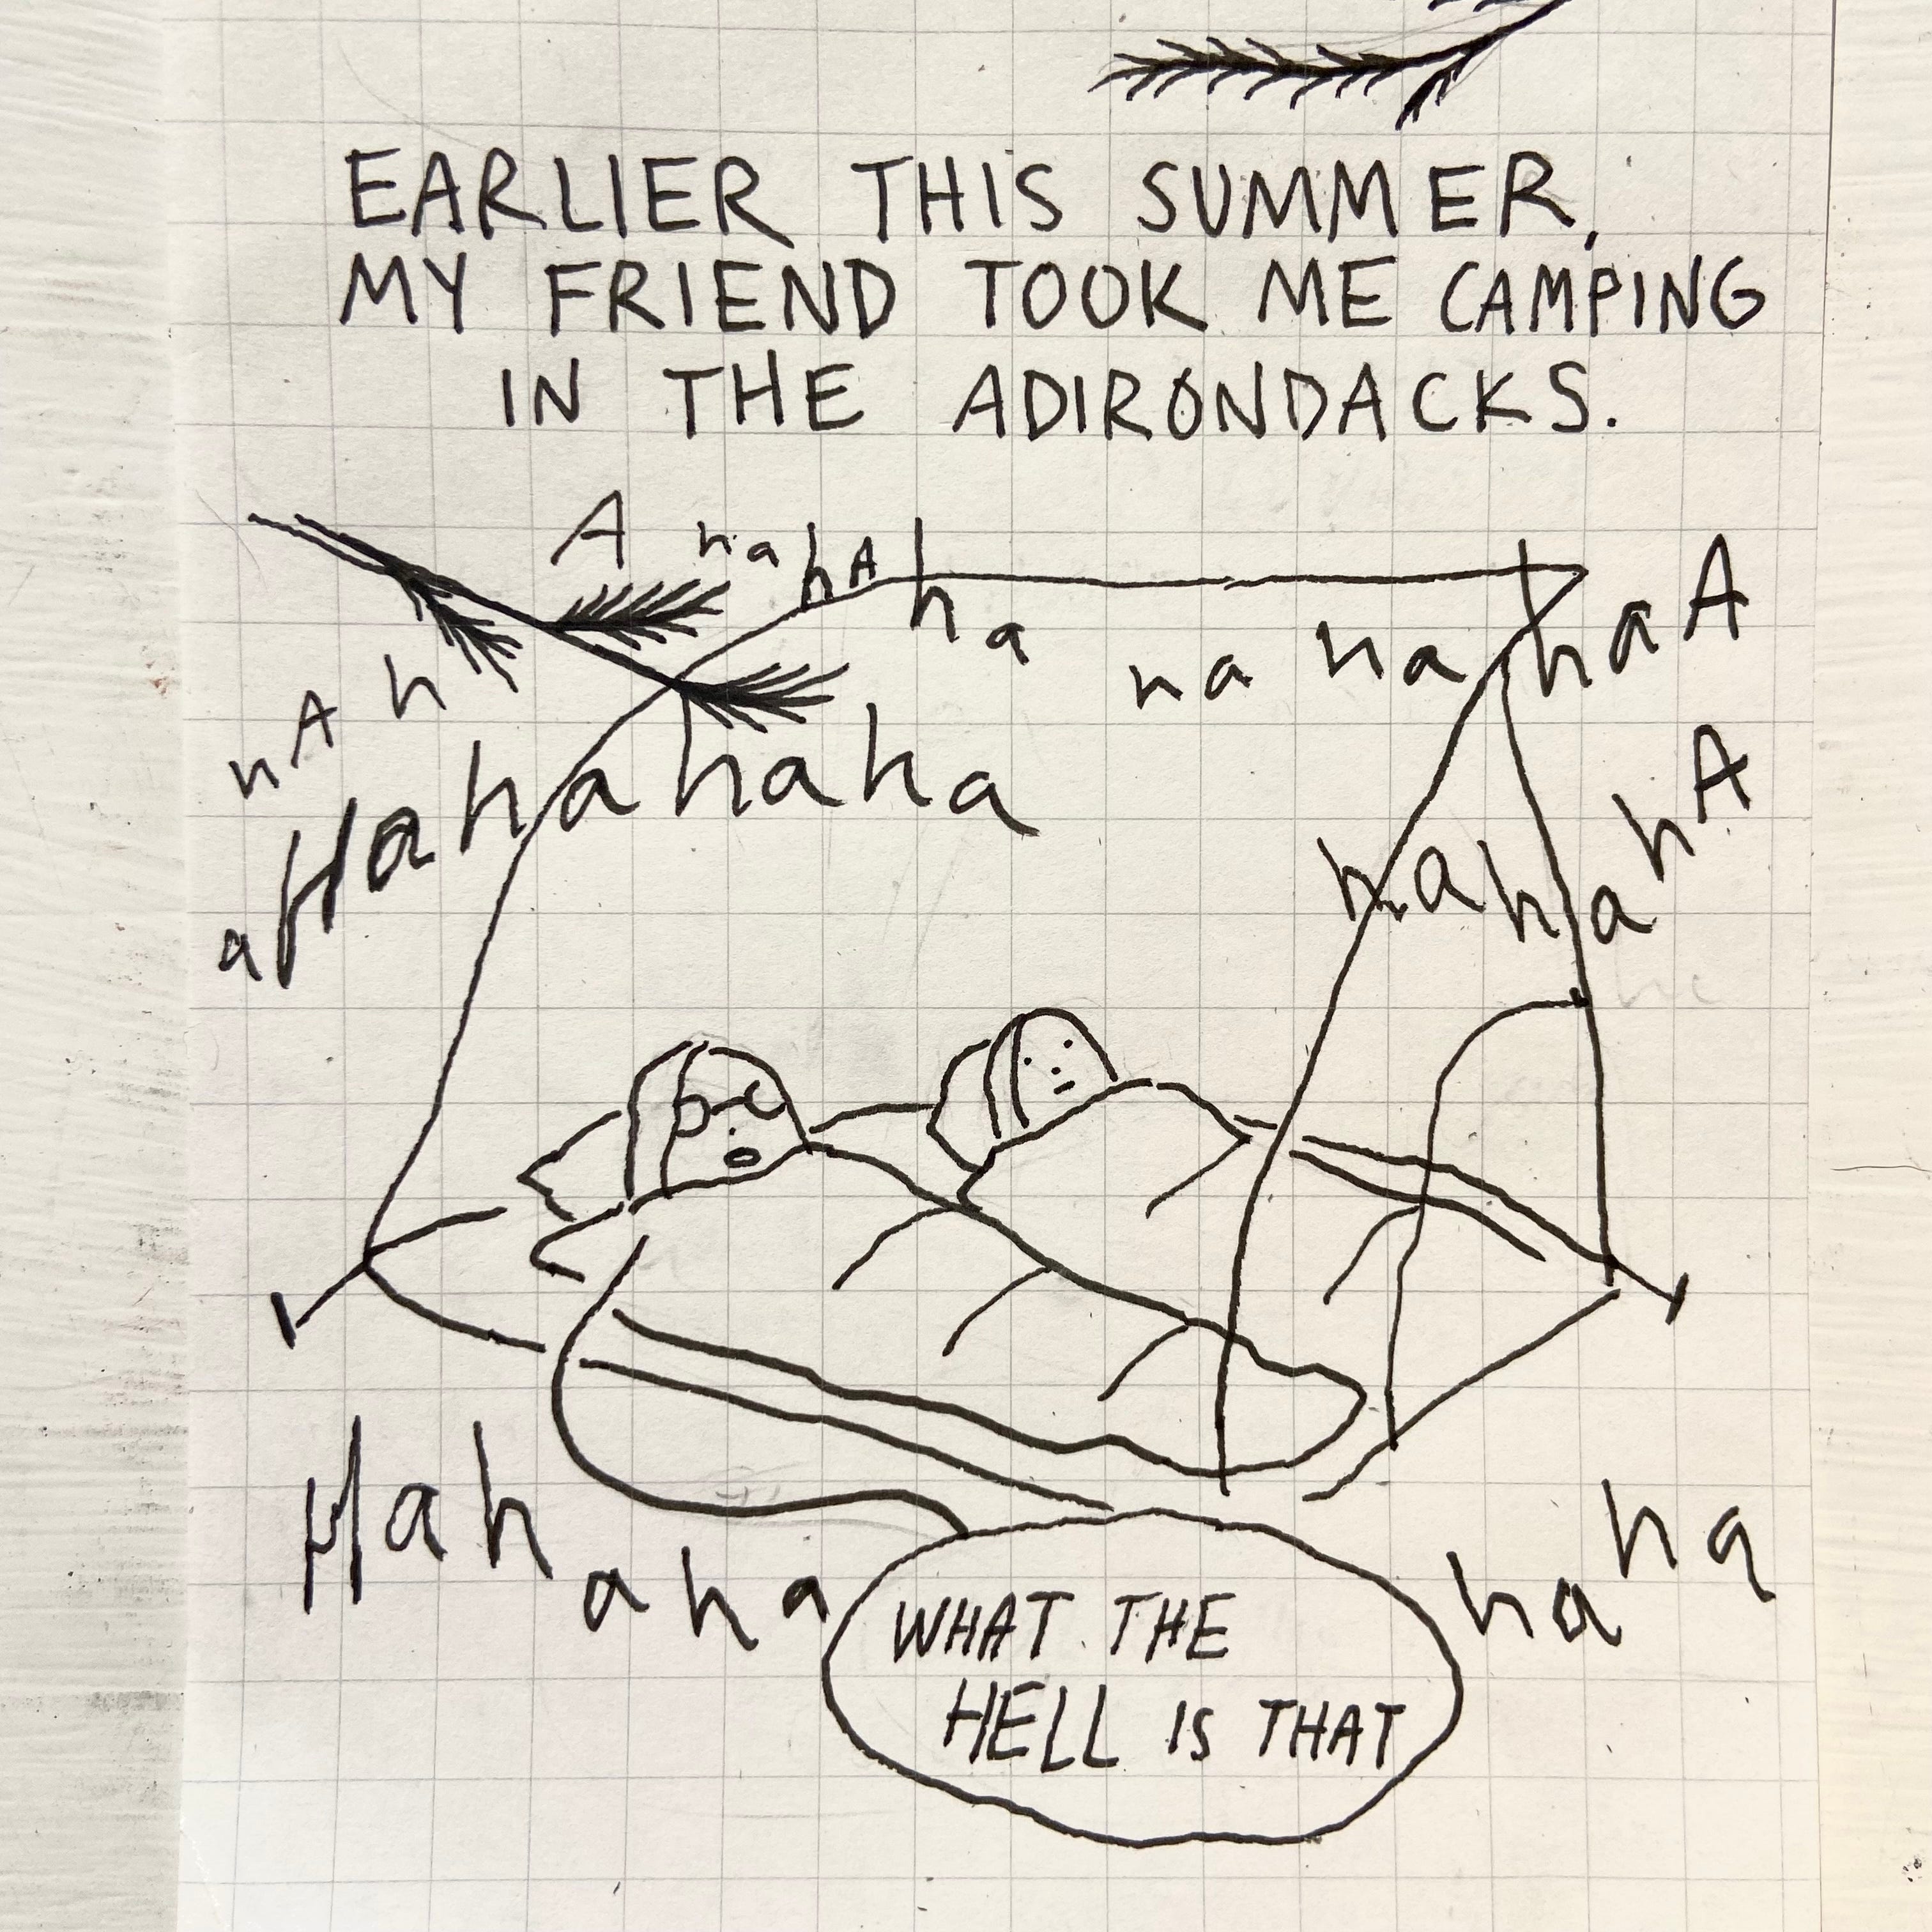 EARLIER THIS SUMMER,
MY FRIEND TOOK ME CAMPING
IN THE ADIRONDACKS.
A hahAha ha ha haA
hAh
aHahahahaha
hahahA
Hahaha
haha
WHAT THE
HELL IS THAT